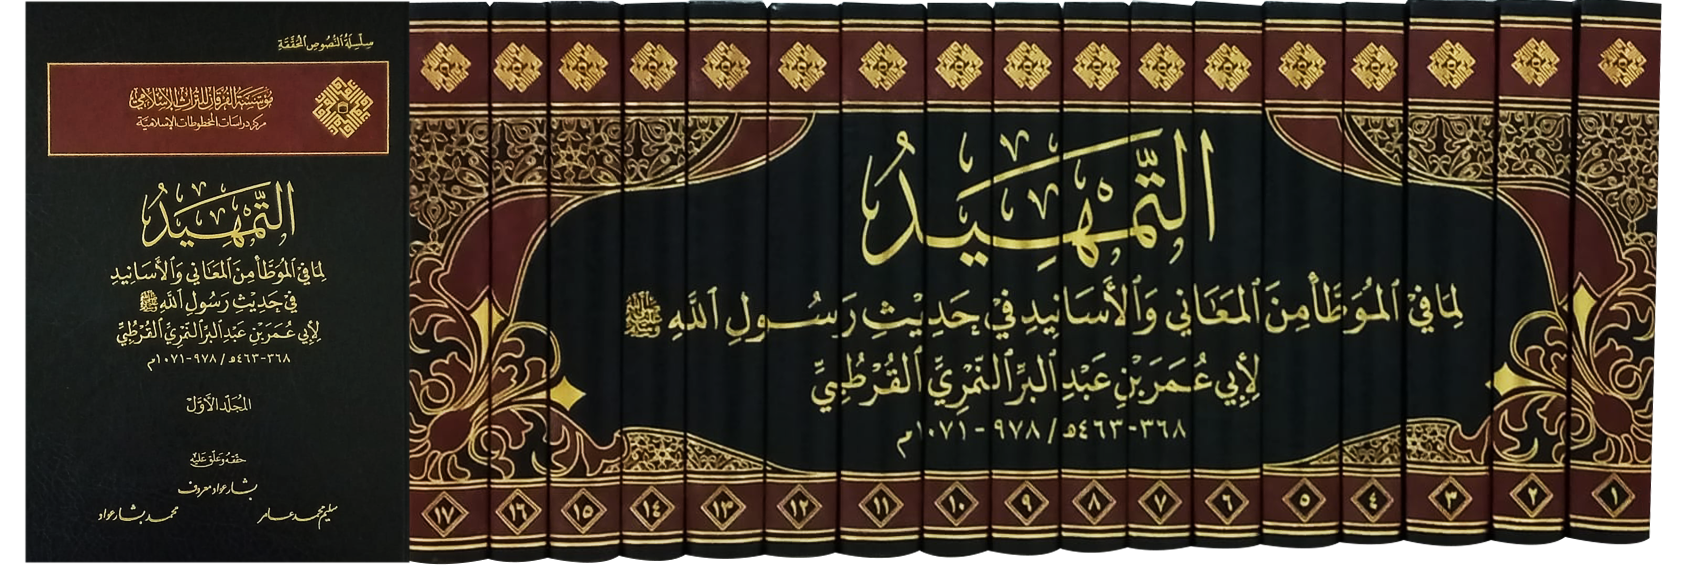 سلسلة النصوص المحققة
مؤسسة الفرقان للتراث الإسلامي
مركز دراسات المخطوطات الإسلامية
التَّمْهِيدُ
لِمَا فِي الْمُوَطَّأ مِنَ الْمَعَانِي وَالْأَسَانِيدِ
فِي حَدِيْثِ رَسُولِ اللهِ ﷺ
لِأَبِي عُمَرَ بْنِ عَبْدِ الْبَرِّ النَّمَرِيِّ الْقُرْطُبِيِّ
٣٦٨-٤٦٣هـ / ٩٧٨-١٠٧١م
المجلد الأول
حققه وعلق عليه
بشار عواد معروف
سليم محمد عامر محمد بشار عواد
التَّمْهِيدُ
لِمَا فِي الْمُوَطَّأ مِنَ الْمَعَانِي وَالْأَسَانِيدِ فِي حَدِيْثِ رَسُولِ اللهِ ﷺ
لِأَبِي عُمَرَ بْنِ عَبْدِ الْبَرِّ النَّمَرِيِّ الْقُرْطُبِيِّ
٣٦٨-٤٦٣هـ / ٩٧٨-١٠٧١م
١ ٢ ٣ ٤ ٥ ٦ ٧ ٨ ٩ ١٠ ١١ ١٢ ١٣ ١٤ ١٥ ١٦ ١٧